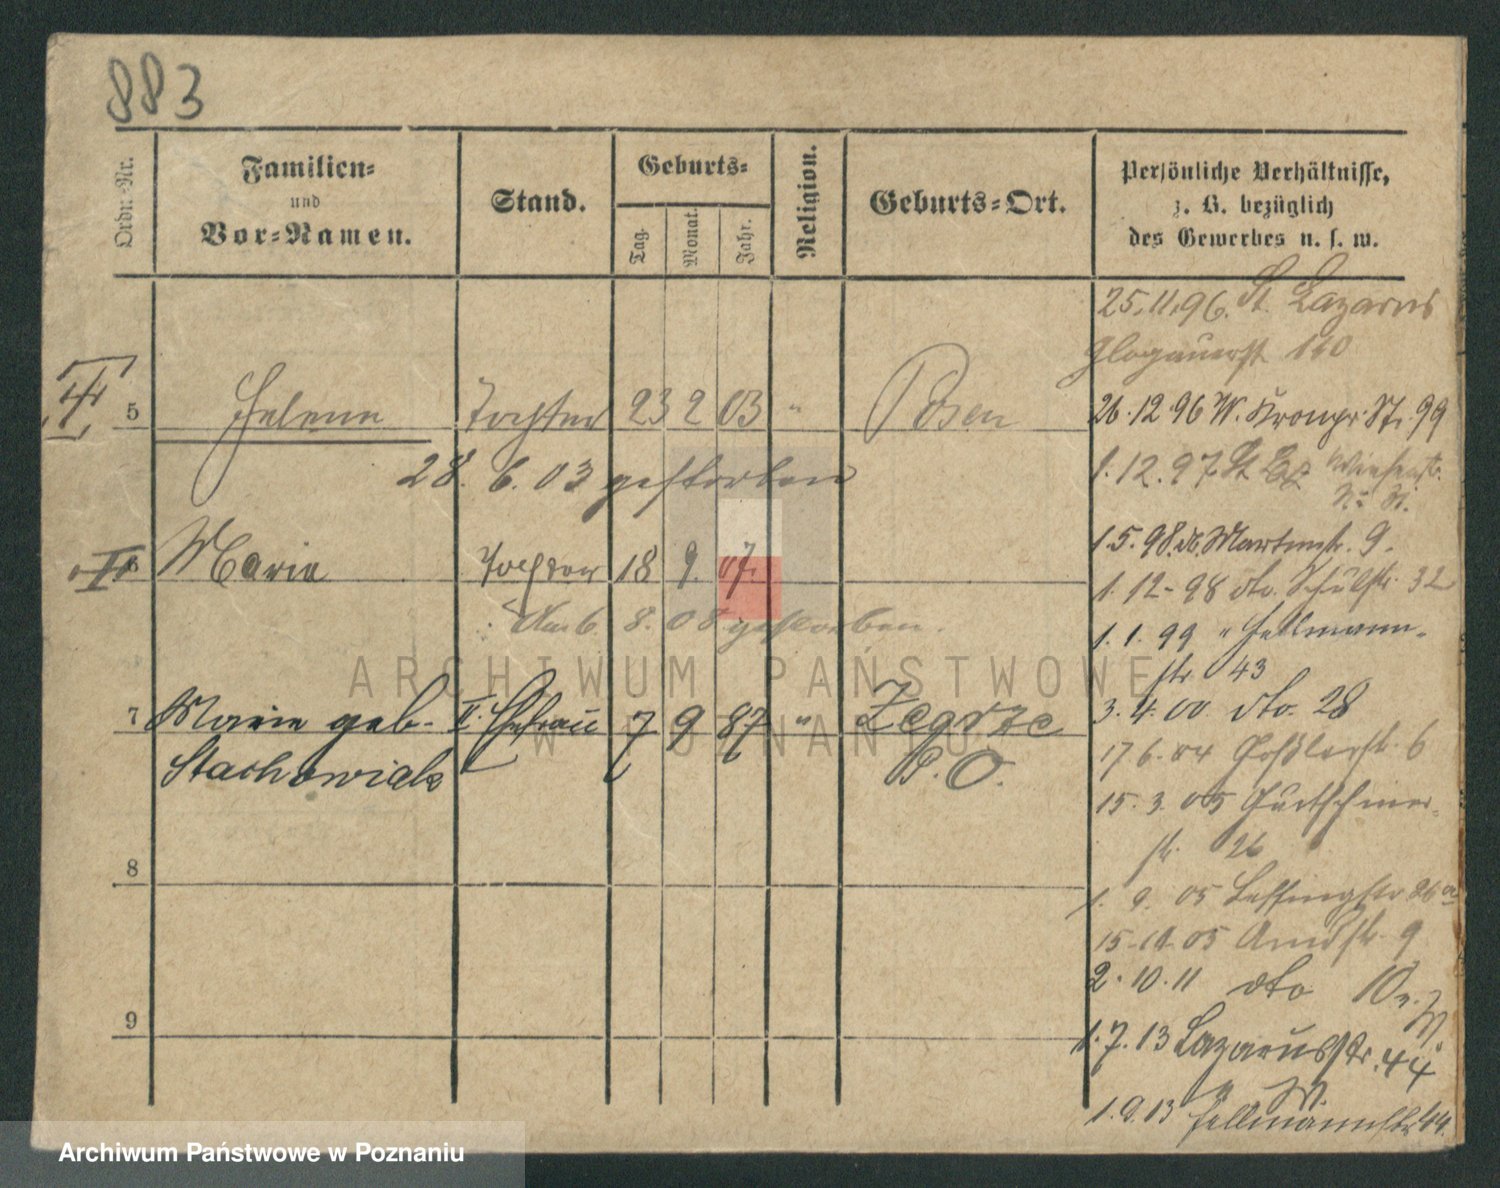 883
Ordn.-Nr.
Familien-
und
Vor-Namen.
Stand.
Geburts-
Tag.
Monat.
Jahr.
Religion.
Geburts-Ort.
Persönliche Verhältnisse,
z. B. bezüglich
des Gewerbes u. s. w.
25.11.96. St. Lazarus
Glogauerst 110
5 Helene Tochter 23 2 03 " Posen
28. 6. 03 gestorben
26.12.96 W. Kronpr. Str. 99
1.12.97. St Laz
6 Maria Tochter 18 9. 07.
6. 8. 08 gestorben.
1.5.98. do. Martinstr. 9.
1.12-98 dto. Schulstr. 32
1.1.99 " Hellmann-
str 43
7 Marie geb. II. Ehefrau 7 9 87 " Zegrze
Stachowiak P. O.
3.4.00 dto. 28
17.6.04 6
15.3.05
str. 26
8
1. 9. 05 Lessingstr 26a
15-10-05 9
2.10.11 dto 10
9
1.7.13 Lazarusstr. 44
1.9.13 Hellmannstr 44.
ARCHIWUM PAŃSTWOWE
W POZNANIU
Archiwum Państwowe w Poznaniu